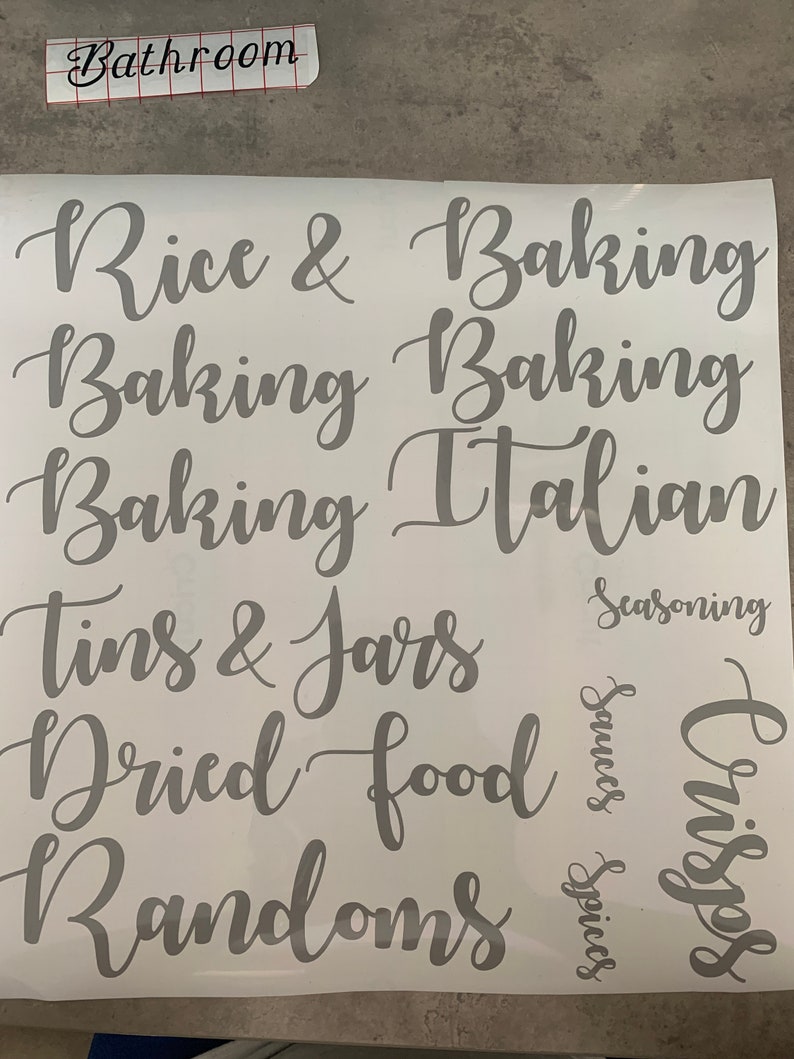 Bathroom
Rice &
Baking
Baking
Baking
Baking
Italian
Seasoning
Tins & Jars
Sauces
Crisps
Dried food
Spices
Randoms